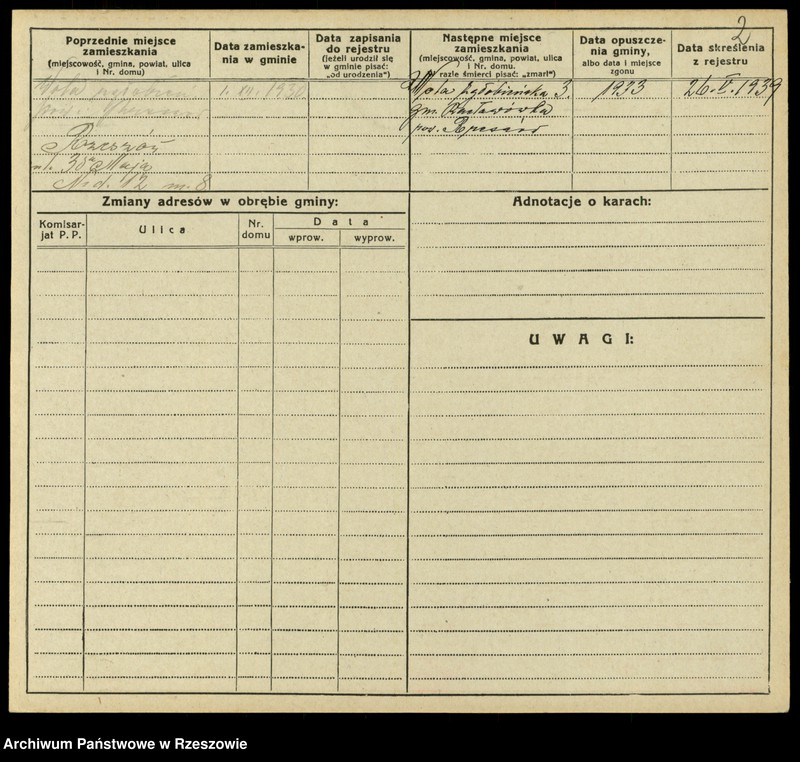 2
Poprzednie miejsce zamieszkania
(miejscowość, gmina, powiat, ulica i Nr. domu)
Data zamieszkania w gminie
Data zapisania do rejestru
(jeżeli urodził się w gminie pisać: „od urodzenia")
Następne miejsce zamieszkania
(miejscowość, gmina, powiat, ulica i Nr. domu.
W razie śmierci pisać: „zmarł")
Data opuszczenia gminy,
albo data i miejsce zgonu
Data skreślenia z rejestru
1. VII. 1930
Rzeszów
ul. 3go Maja
Nr d. 12 m. 8
Wola 3.
gm.
pow. Rzeszów
1933
26. V. 1939
Zmiany adresów w obrębie gminy:
Komisarjat P. P.
Ulica
Nr. domu
Data
wprow.
wyprow.
Adnotacje o karach:
UWAGI:
Archiwum Państwowe w Rzeszowie